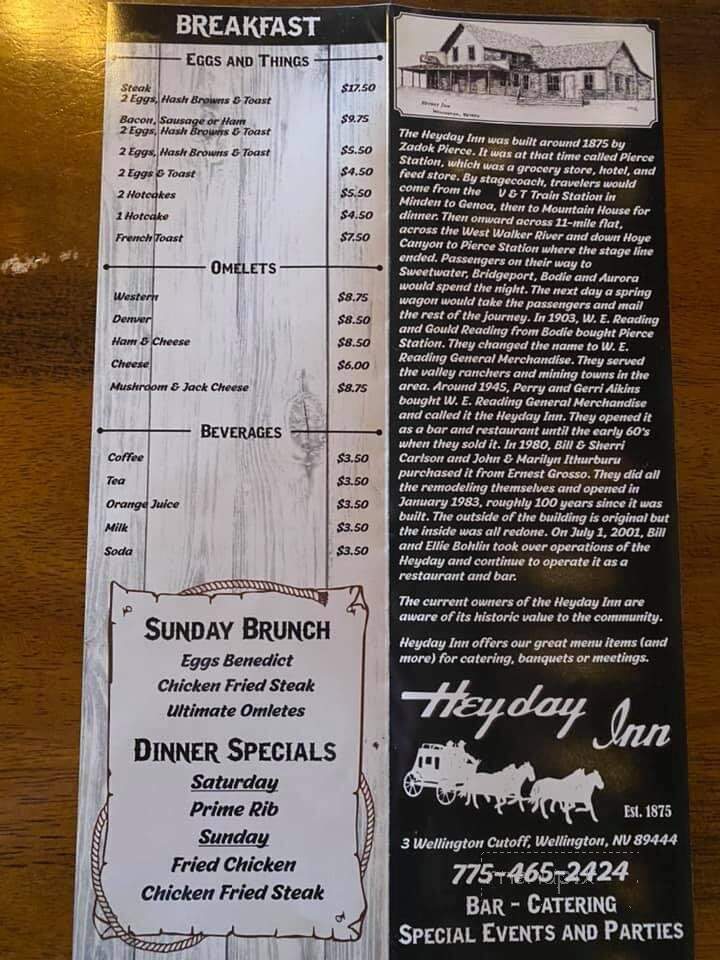 BREAKFAST
EGGS AND THINGS
Steak $17.50
2 Eggs, Hash Browns & Toast
Bacon, Sausage or Ham $9.75
2 Eggs, Hash Browns & Toast
2 Eggs, Hash Browns & Toast $5.50
2 Eggs & Toast $4.50
2 Hotcakes $5.50
1 Hotcake $4.50
French Toast $7.50
OMELETS
Western $8.75
Denver $8.50
Ham & Cheese $8.50
Cheese $6.00
Mushroom & Jack Cheese $8.75
BEVERAGES
Coffee $3.50
Tea $3.50
Orange Juice $3.50
Milk $3.50
Soda $3.50
SUNDAY BRUNCH
Eggs Benedict
Chicken Fried Steak
Ultimate Omletes
DINNER SPECIALS
Saturday
Prime Rib
Sunday
Fried Chicken
Chicken Fried Steak
Heyday Inn
Wellington, Nevada
The Heyday Inn was built around 1875 by
Zadok Pierce. It was at that time called Pierce
Station, which was a grocery store, hotel, and
feed store. By stagecoach, travelers would
come from the U & T Train Station in
Minden to Genoa, then to Mountain House for
dinner. Then onward across 11-mile flat,
across the West Walker River and down Hoye
Canyon to Pierce Station where the stage line
ended. Passengers on their way to
Sweetwater, Bridgeport, Bodie and Aurora
would spend the night. The next day a spring
wagon would take the passengers and mail
the rest of the journey. In 1903, W. E. Reading
and Gould Reading from Bodie bought Pierce
Station. They changed the name to W. E.
Reading General Merchandise. They served
the valley ranchers and mining towns in the
area. Around 1945, Perry and Gerri Aikins
bought W. E. Reading General Merchandise
and called it the Heyday Inn. They opened it
as a bar and restaurant until the early 60's
when they sold it. In 1980, Bill & Sherri
Carlson and John & Marilyn Ithurburu
purchased it from Ernest Grosso. They did all
the remodeling themselves and opened in
January 1983, roughly 100 years since it was
built. The outside of the building is original but
the inside was all redone. On July 1, 2001, Bill
and Ellie Bohlin took over operations of the
Heyday and continue to operate it as a
restaurant and bar.
The current owners of the Heyday Inn are
aware of its historic value to the community.
Heyday Inn offers our great menu items (and
more) for catering, banquets or meetings.
Heyday Inn
Est. 1875
3 Wellington Cutoff, Wellington, NV 89444
775-465-2424
BAR - CATERING
SPECIAL EVENTS AND PARTIES